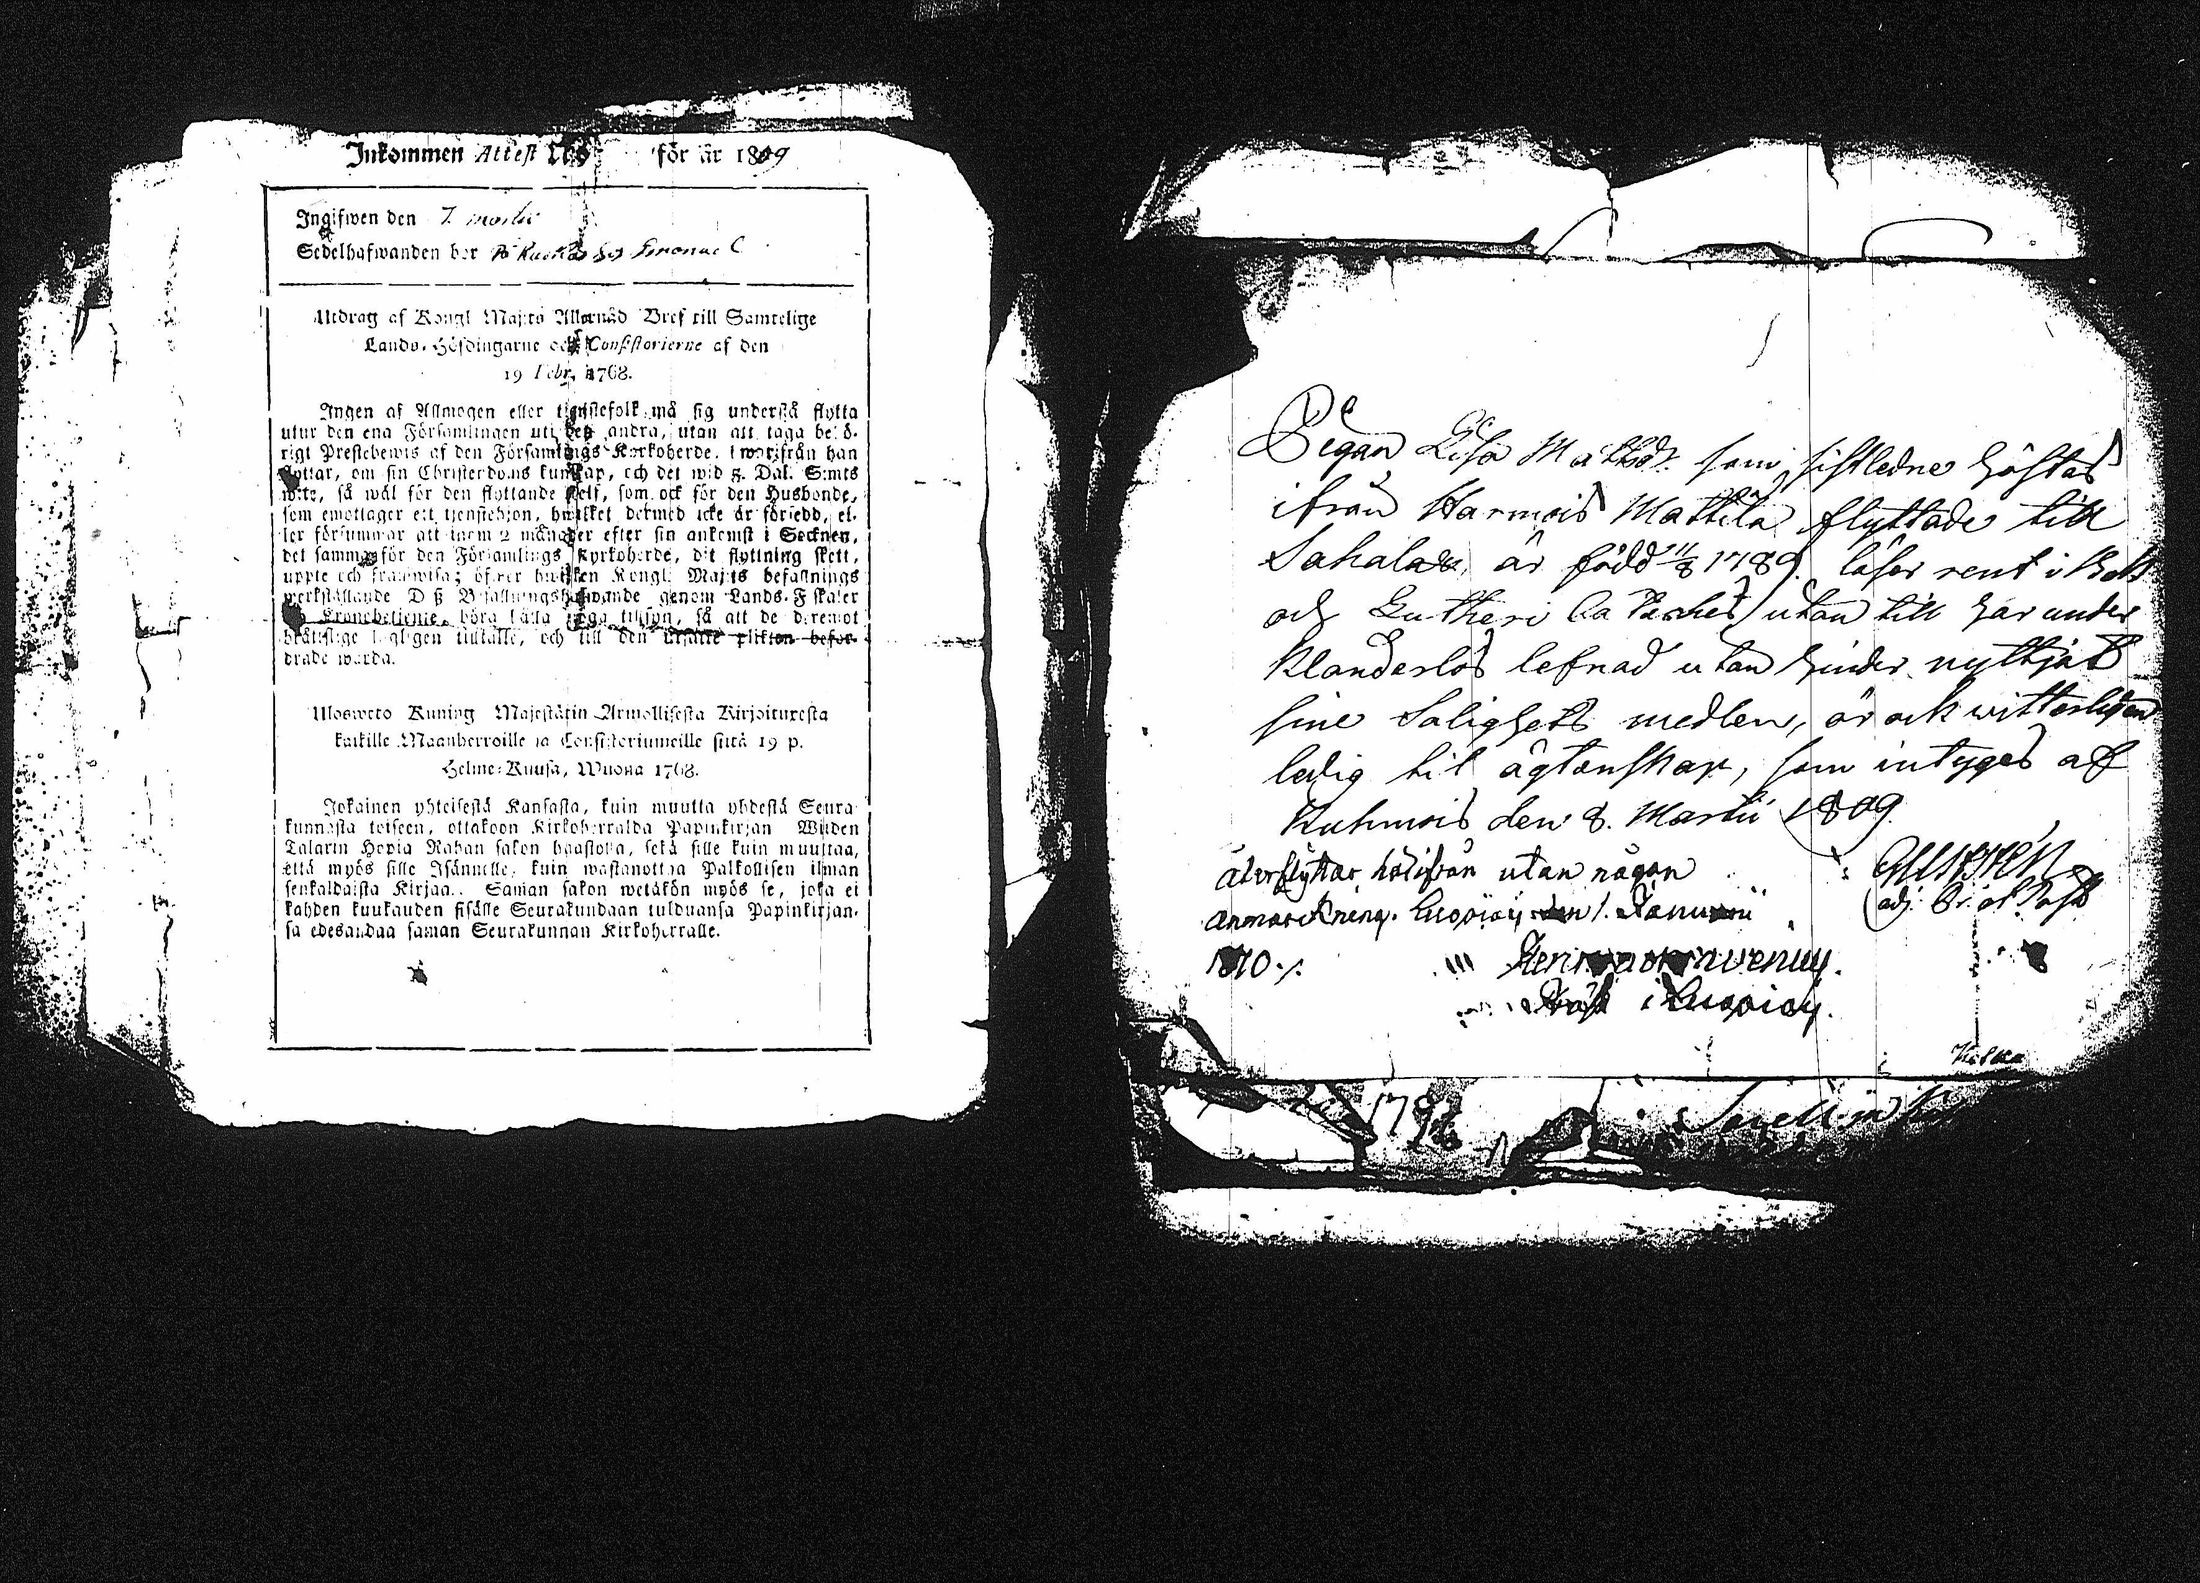 Inkommen Attest No för år 1809
Ingifwen den 7. martii
Sedelhafwanden bor på
Utdrag af Kongl Maj:ts Allernåd Bref till Samtelige
Lands-Höfdingarne och Consistorierne af den
19 Febr. 1768.
Ingen af Allmogen eller tjenstefolk må sig understå flytta
utur den ena Församlingen uti den andra, utan att taga behö-
rigt Prestebewis af den Församlings Kyrkoherde, hwarifrån han
flyttar, om sin Christendoms kunskap, och det wid 3. Dal. S:mts
wite, så wäl för den flyttande sjelf, som ock för den Husbonde,
som emottager ett tjenstehjon, hwilket dermed icke är försedd, el-
ler försummar att inom 2 månader efter sin ankomst i Socknen,
det samma för den Församlings Kyrkoherde, dit flyttning skett,
uppte och framwisa; öfwer hwilken Kongl. Maj:ts befallnings
werkställande Deß Befallningshafwande genom Lands-Fiskaler
Kronobetjente, böra låta noga tillsyn, så att de deremot
brottslige lagligen tilltalte, och till den utsatte plikten befor-
drade warda.
Ulosweto Kuning Majestätin Armollisesta Kirjoituxesta
kaikille Maanherroille ja Consistoriumeille siitä 19 p.
Helme-Kuusa, Wuona 1768.
Jokainen yhteisestä Kansasta, kuin muutta yhdestä Seura-
kunnasta toiseen, ottakoon Kirkoherralda Papinkirjan Wiiden
Talarin Hopia Rahan sakon haastolla, sekä sille kuin muuttaa,
että myös sille Isännelle, kuin wastanottaa Palkollisen ilman
senkaldaista Kirjaa. Saman sakon wetäkön myös se, joka ei
kahden kuukauden sisälle Seurakundaan tulduansa Papinkirjan-
sa edesandaa saman Seurakunnan Kirkoherralle.
Pigan Lisa Mattsdr. som sistledne höstas
ifrån Harmois Mattila flyttade till
Sahalax, är född 11/8 1789. läser rent i Bok
och Lutheri Cateches utan till har under
klanderlös lefnad utan hinder nyttjat
sine Salighets medlen, är ock witterligen
ledig til ägtenskap, som intyges af
Kuhmois den 8. Martii 1809.
adj.
Åter flyttar härifrån utan någon
anmärkning. Luopiois den 1. Januarii
1810.
i Luopiois.
179